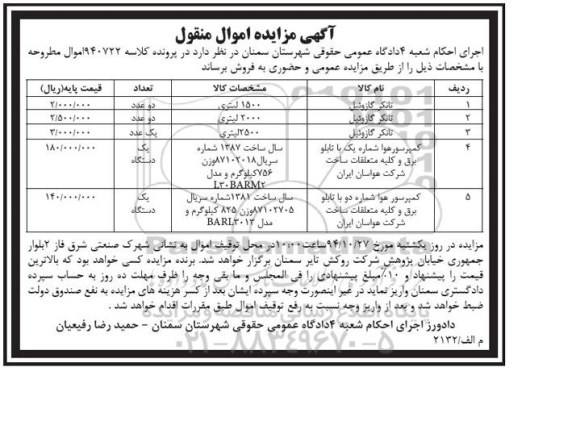 آگهی مزایده اموال منقول
اجرای احکام شعبه ۴دادگاه عمومی حقوقی شهرستان سمنان در نظر دارد در پرونده کلاسه ۹۴۰۷۲۲اموال مطروحه
با مشخصات ذیل را از طریق مزایده عمومی و حضوری به فروش برساند
ردیف نام کالا مشخصات کالا تعداد قیمت پایه(ریال)
۱ تانکر گازوئیل ۱۵۰۰ لیتری دو عدد ۲/۰۰۰/۰۰۰
۲ تانکر گازوئیل ۲۰۰۰ لیتری دو عدد ۲/۵۰۰/۰۰۰
۳ تانکر گازوئیل ۲۵۰۰لیتری یک عدد ۳/۰۰۰/۰۰۰
۴ کمپرسورهوا شماره یک با تابلو سال ساخت ۱۳۸۷ شماره یک ۱۸۰/۰۰۰/۰۰۰
برق و کلیه متعلقات ساخت سریال۸۷۱۰۲۰۱۸وزن دستگاه
شرکت هواسان ایران ۷۵۶کیلوگرم و مدل
L۳۰BARM۲
۵ کمپرسور هوا شماره دو با تابلو سال ساخت ۱۳۸۱شماره سریال یک ۱۴۰/۰۰۰/۰۰۰
برق و کلیه متعلقات ساخت ۸۷۱۰۲۷۰۵وزن ۸۲۵ کیلوگرم و دستگاه
شرکت هواسان ایران مدل BARL۳۰۱۳
مزایده در روز یکشنبه مورخ ۹۴/۱۰/۲۷ساعت۱۰:۰۰در محل توقیف اموال به نشانی شهرک صنعتی شرق فاز ۲بلوار
جمهوری خیابان پژوهش شرکت روکش تایر سمنان برگزار خواهد شد. برنده مزایده کسی خواهد بود که بالاترین
قیمت را پیشنهاد و ۱۰٪مبلغ پیشنهادی را فی المجلس و ما بقی وجه را ظرف مهلت ده روز به حساب سپرده
دادگستری سمنان واریز نماید در غیر اینصورت وجه سپرده ایشان بعد از کسر هزینه های مزایده به نفع صندوق دولت
ضبط خواهد شد و بعد از واریز وجه نسبت به رفع توقیف اموال طبق مقررات اقدام خواهد شد .
دادورز اجرای احکام شعبه ۴دادگاه عمومی حقوقی شهرستان سمنان - حمید رضا رفیعیان
م الف/۲۱۳۲
۰۲۱-۸۸۳۴۹۶۷۰-۵